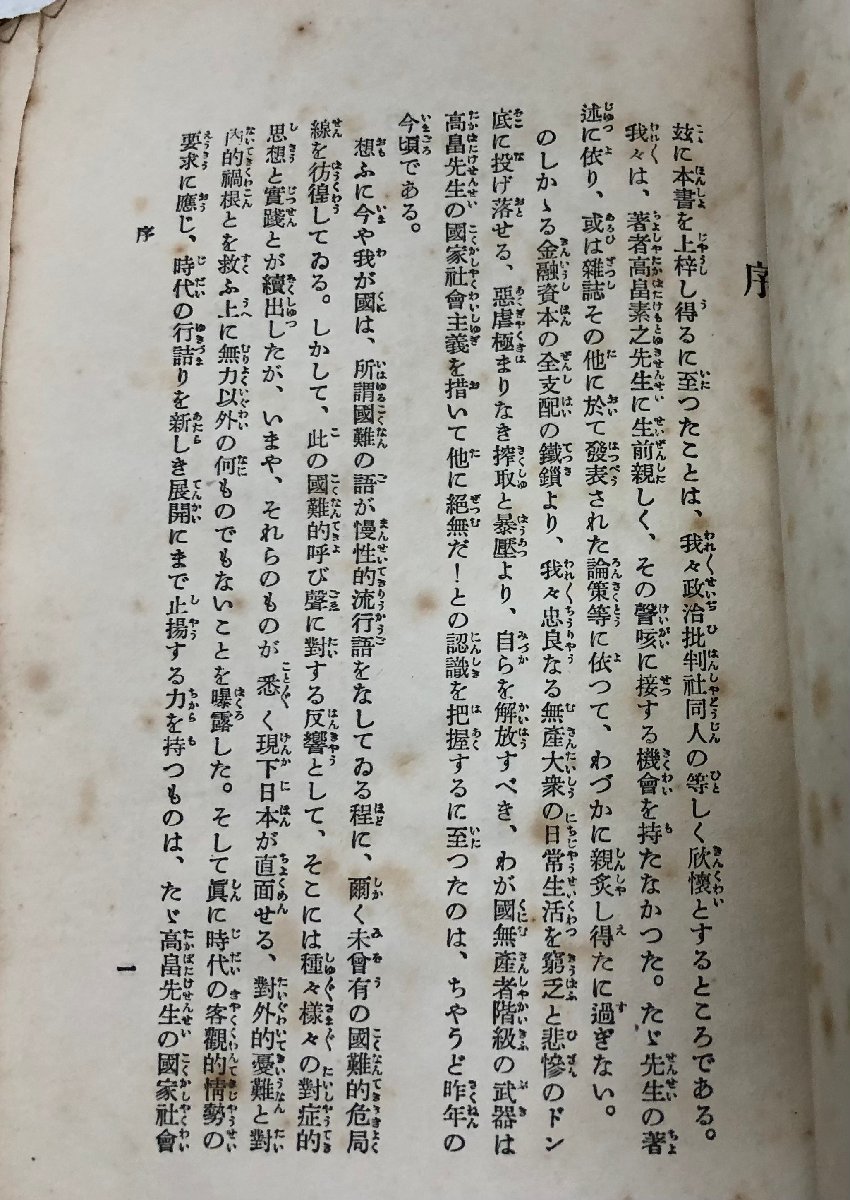 序
茲に本書を上梓し得るに至つたことは、我々政治批判社同人の等しく欣懷とするところである。
我々は、著者高畠素之先生に生前親しく、その謦咳に接する機會を持たなかつた。たゞ先生の著
述に依り、或は雜誌その他に於て發表された論策等に依つて、わづかに親炙し得たに過ぎない。
のしかゝる金融資本の全支配の鐵鎖より、我々忠良なる無產大衆の日常生活を窮乏と悲慘のドン
底に投げ落せる、惡虐極まりなき搾取と暴壓より、自らを解放すべき、わが國無產者階級の武器は
高畠先生の國家社會主義を措いて他に絕無だ！との認識を把握するに至つたのは、ちやうど昨年の
今頃である。
想ふに今や我が國は、所謂國難の語が慢性的流行語をなしてゐる程に、爾く未曾有の國難的危局
線を彷徨してゐる。しかして、此の國難的呼び聲に對する反響として、そこには種々樣々の對症的
思想と實踐とが續出したが、いまや、それらのものが悉く現下日本が直面せる、對外的憂難と對
內的禍根とを救ふ上に無力以外の何ものでもないことを曝露した。そして眞に時代の客觀的情勢の
要求に應じ、時代の行詰りを新しき展開にまで止揚する力を持つものは、たゞ高畠先生の國家社會
序
一